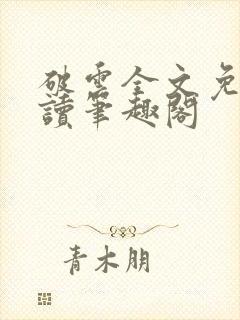 破雲全文免
讀筆趣閣
青木朋